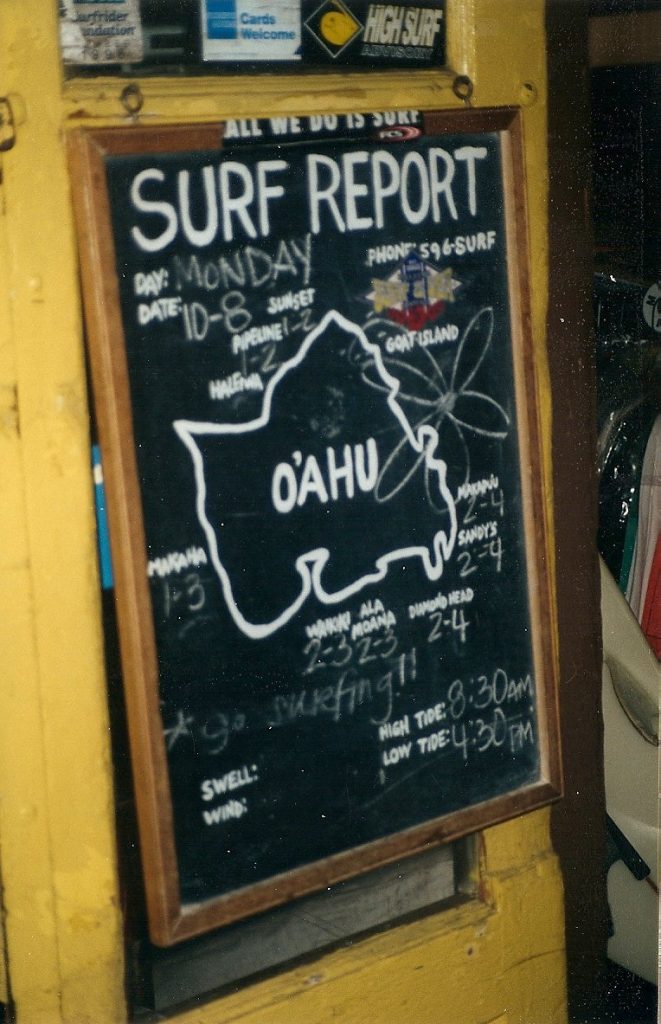 Surfrider
Foundation
Cards
Welcome
HIGH SURF
ADVISORY
ALL WE DO IS SURF
FCS
SURF REPORT
DAY: MONDAY
PHONE: 596-SURF
DATE: 10-8
SUNSET
1-2
PIPELINE
1-2
HALEIWA
GOAT ISLAND
O'AHU
MAKAPUU
2-4
SANDY'S
2-4
MAKAHA
1-3
WAIKIKI
2-3
ALA
MOANA
2-3
DIAMOND HEAD
2-4
* go surfing!!
HIGH TIDE: 8:30 AM
LOW TIDE: 4:30 PM
SWELL:
WIND: